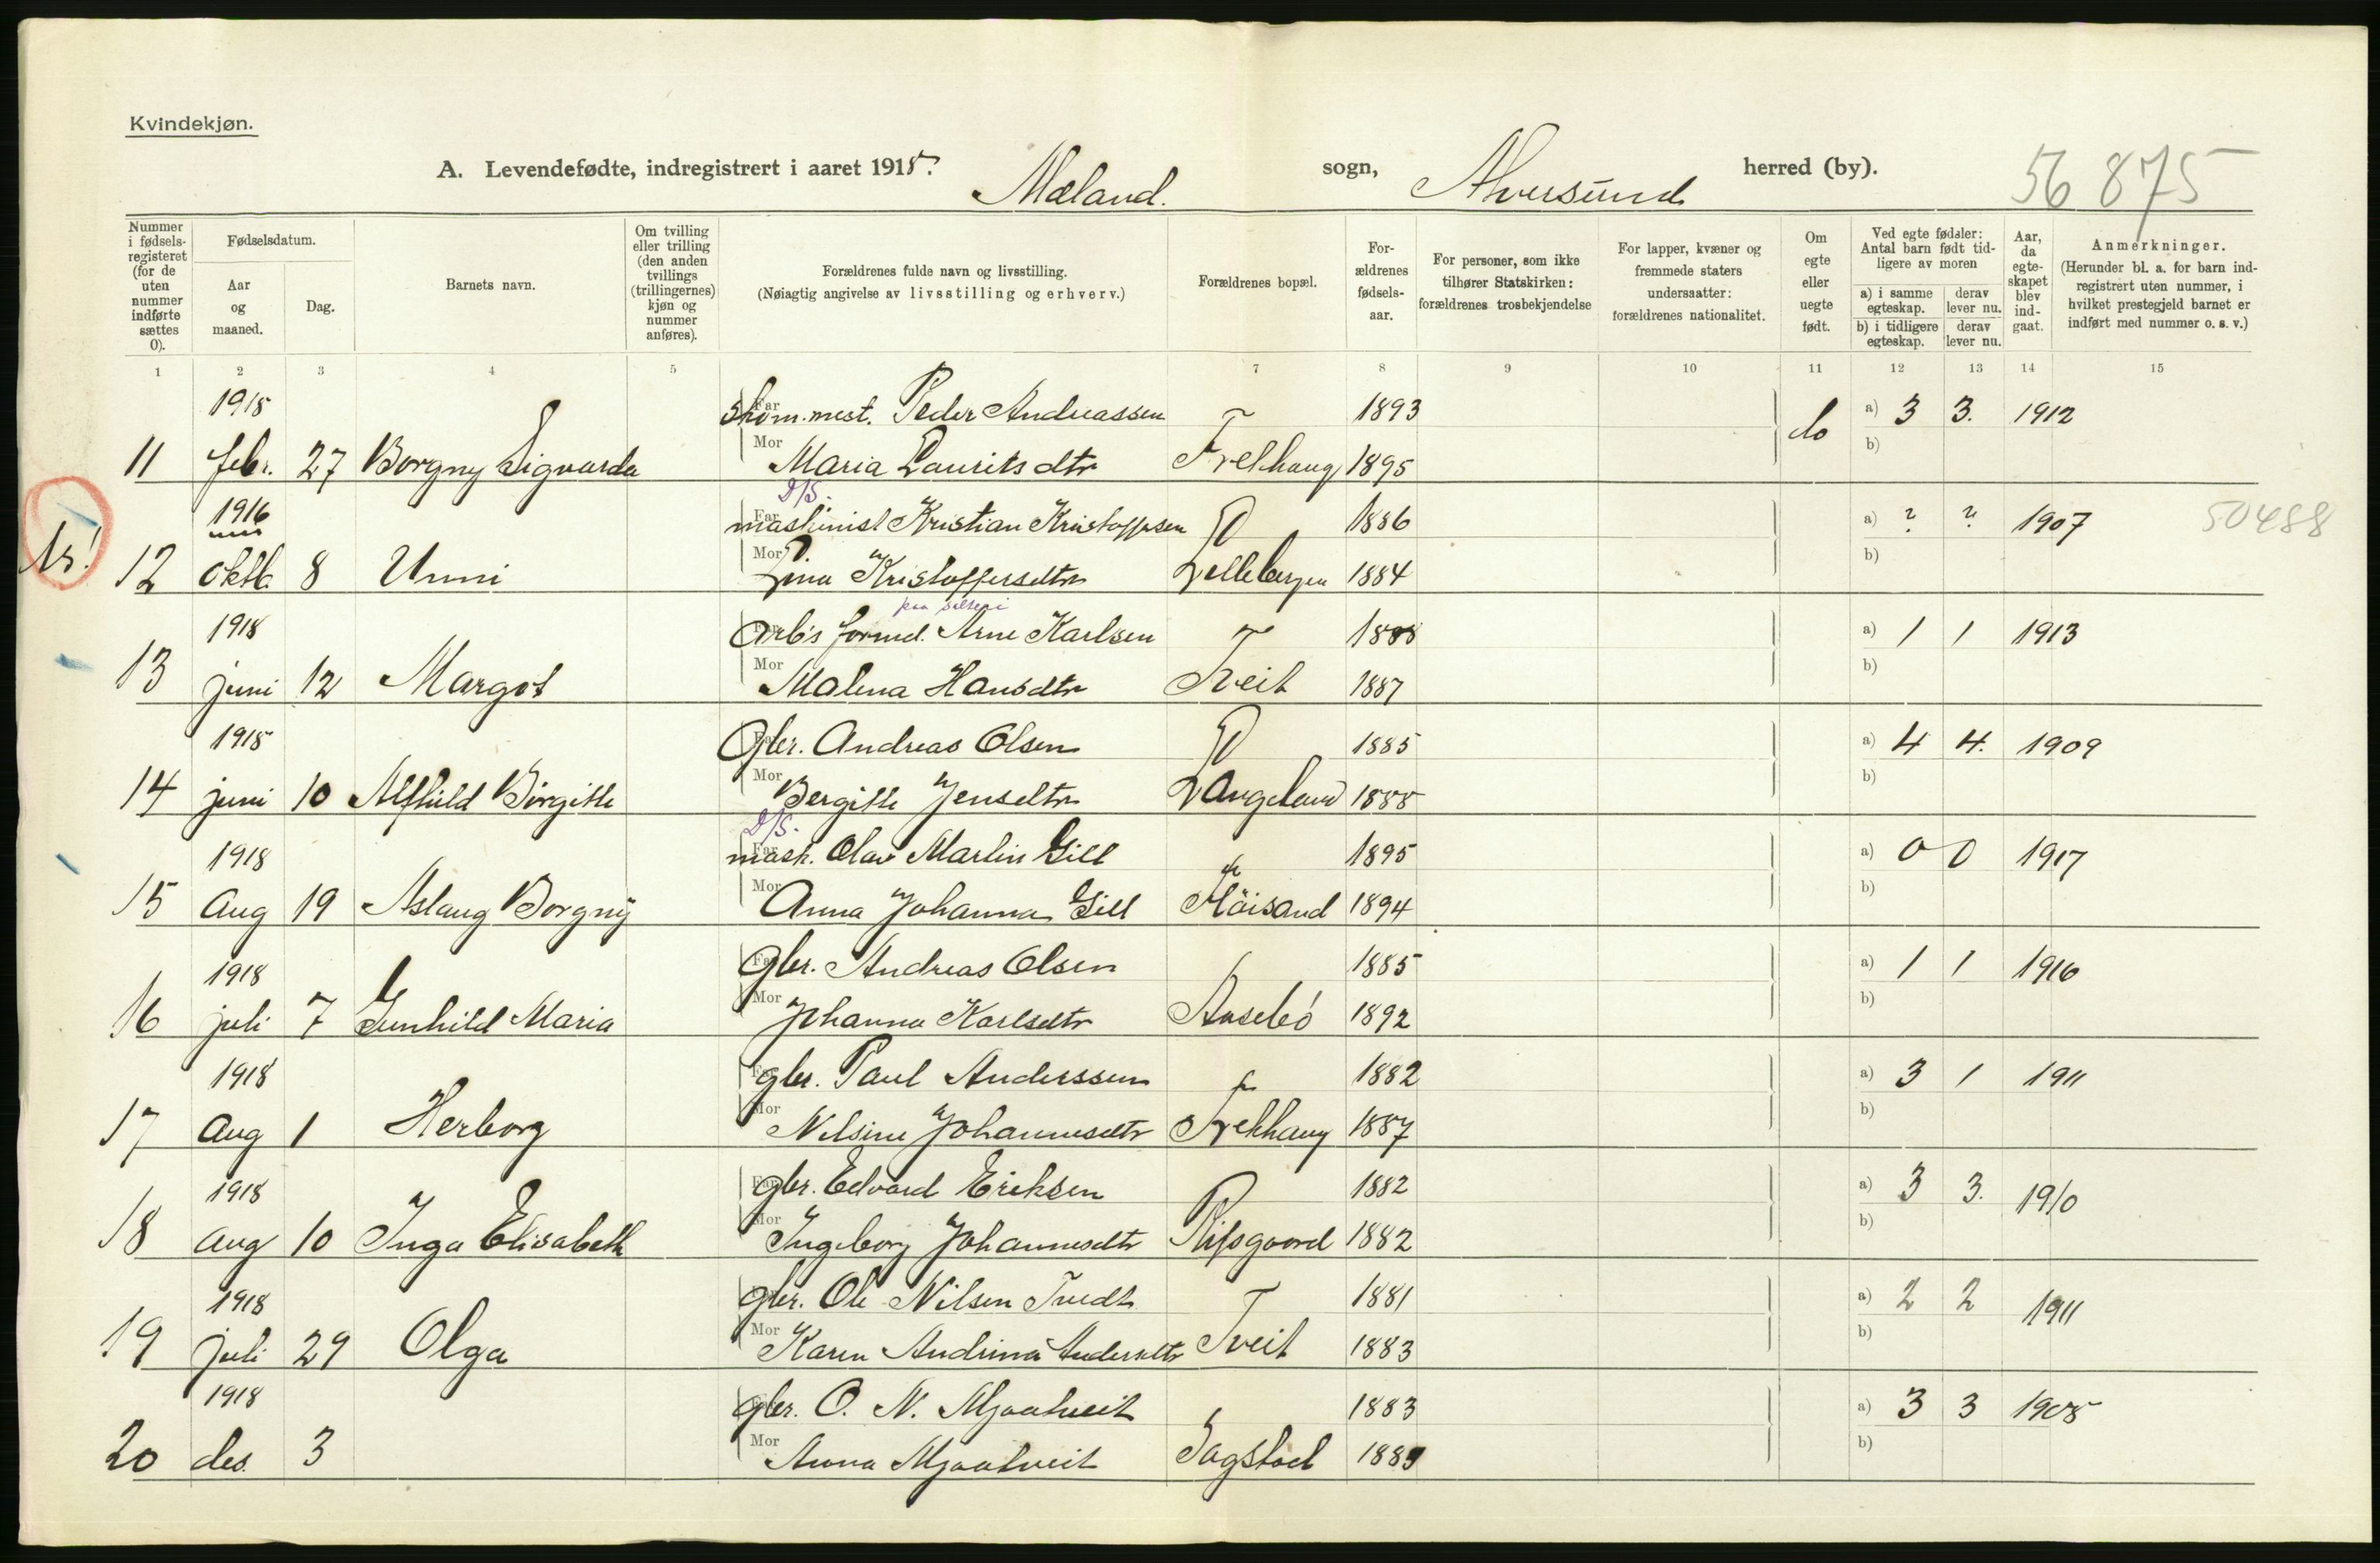 Kvindekjøn.
A. Levendefødte, indregistrert i aaret 1918. Mæland. sogn, Alversund herred (by). 56875
Nummer i fødsels-registeret (for de uten nummer indførte sættes 0).
Fødselsdatum.
Aar og maaned.
Dag.
Barnets navn.
Om tvilling eller trilling (den anden tvillings (trillingernes) kjøn og nummer anføres).
Forældrenes fulde navn og livsstilling.
(Nøiagtig angivelse av livsstilling og erhverv.)
Forældrenes bopæl.
For-ældrenes fødsels-aar.
For personer, som ikke tilhører Statskirken: forældrenes trosbekjendelse
For lapper, kvæner og fremmede staters undersaatter: forældrenes nationalitet.
Om egte eller uegte født.
Ved egte fødsler: Antal barn født tid-ligere av moren
a) i samme egteskap. derav lever nu.
b) i tidligere egteskap. derav lever nu.
Aar, da egte-skapet blev ind-gaat.
Anmerkninger.
(Herunder bl. a. for barn ind-registrert uten nummer, i hvilket prestegjeld barnet er indført med nummer o. s. v.)
1 2 3 4 5 7 8 9 10 11 12 13 14 15
1918 Far skom.mest. Peder Andreassen 1893 a) 3 3. 1912
11 febr. 27 Borgny Sigvarda Mor Maria Lauritsdtr Frekhaug 1895 b)
D/S.
1916 Far maskinist Kristian Kristoffersen 1886 a) ? ? 1907 50488
12 oktb. 8 Unni Mor Lina Kristoffersdtr 1884 b)
paa
1918 Far Arb's formd. Arne Karlsen 1888 a) 1 1 1913
13 juni 12 Margot Mor Malena Hansdtr Tveit 1887 b)
1918 Far Gbr. Andreas Olsen 1885 a) 4 4. 1909
14 juni 10 Alfhild Birgitte Mor Bergitte Jensdtr Langeland 1888 b)
D/S.
1918 Far mask. Olav Martin Gill 1895 a) 0 0 1917
15 Aug 19 Aslaug Borgny Mor Anna Johanna Gill Fløisand 1894 b)
1918 Far Gbr. Andreas Olsen 1885 a) 1 1 1916
16 juli 7 Gunhild Maria Mor Johanna Karlsdtr 1892 b)
1918 Far gbr. Paul Anderssen 1882 a) 3 1 1911
17 Aug 1 Herborg Mor Nilsine Johannesdtr Frekhaug 1887 b)
1918 Far gbr. Edvard Eriksen 1882 a) 3 3. 1910
18 Aug 10 Inga Elisabeth Mor Ingeborg Johannesdtr 1882 b)
1918 Far gbr. Ole Nilsen Tvedt 1881 a) 2 2 1911
19 juli 29 Olga Mor Karen Andrina Andersdtr Tveit 1883 b)
1918 Far gbr. O. N. Mjaatveit 1883 a) 3 3 1908
20 des. 3 Mor Anna Mjaatveit Sagstad b)